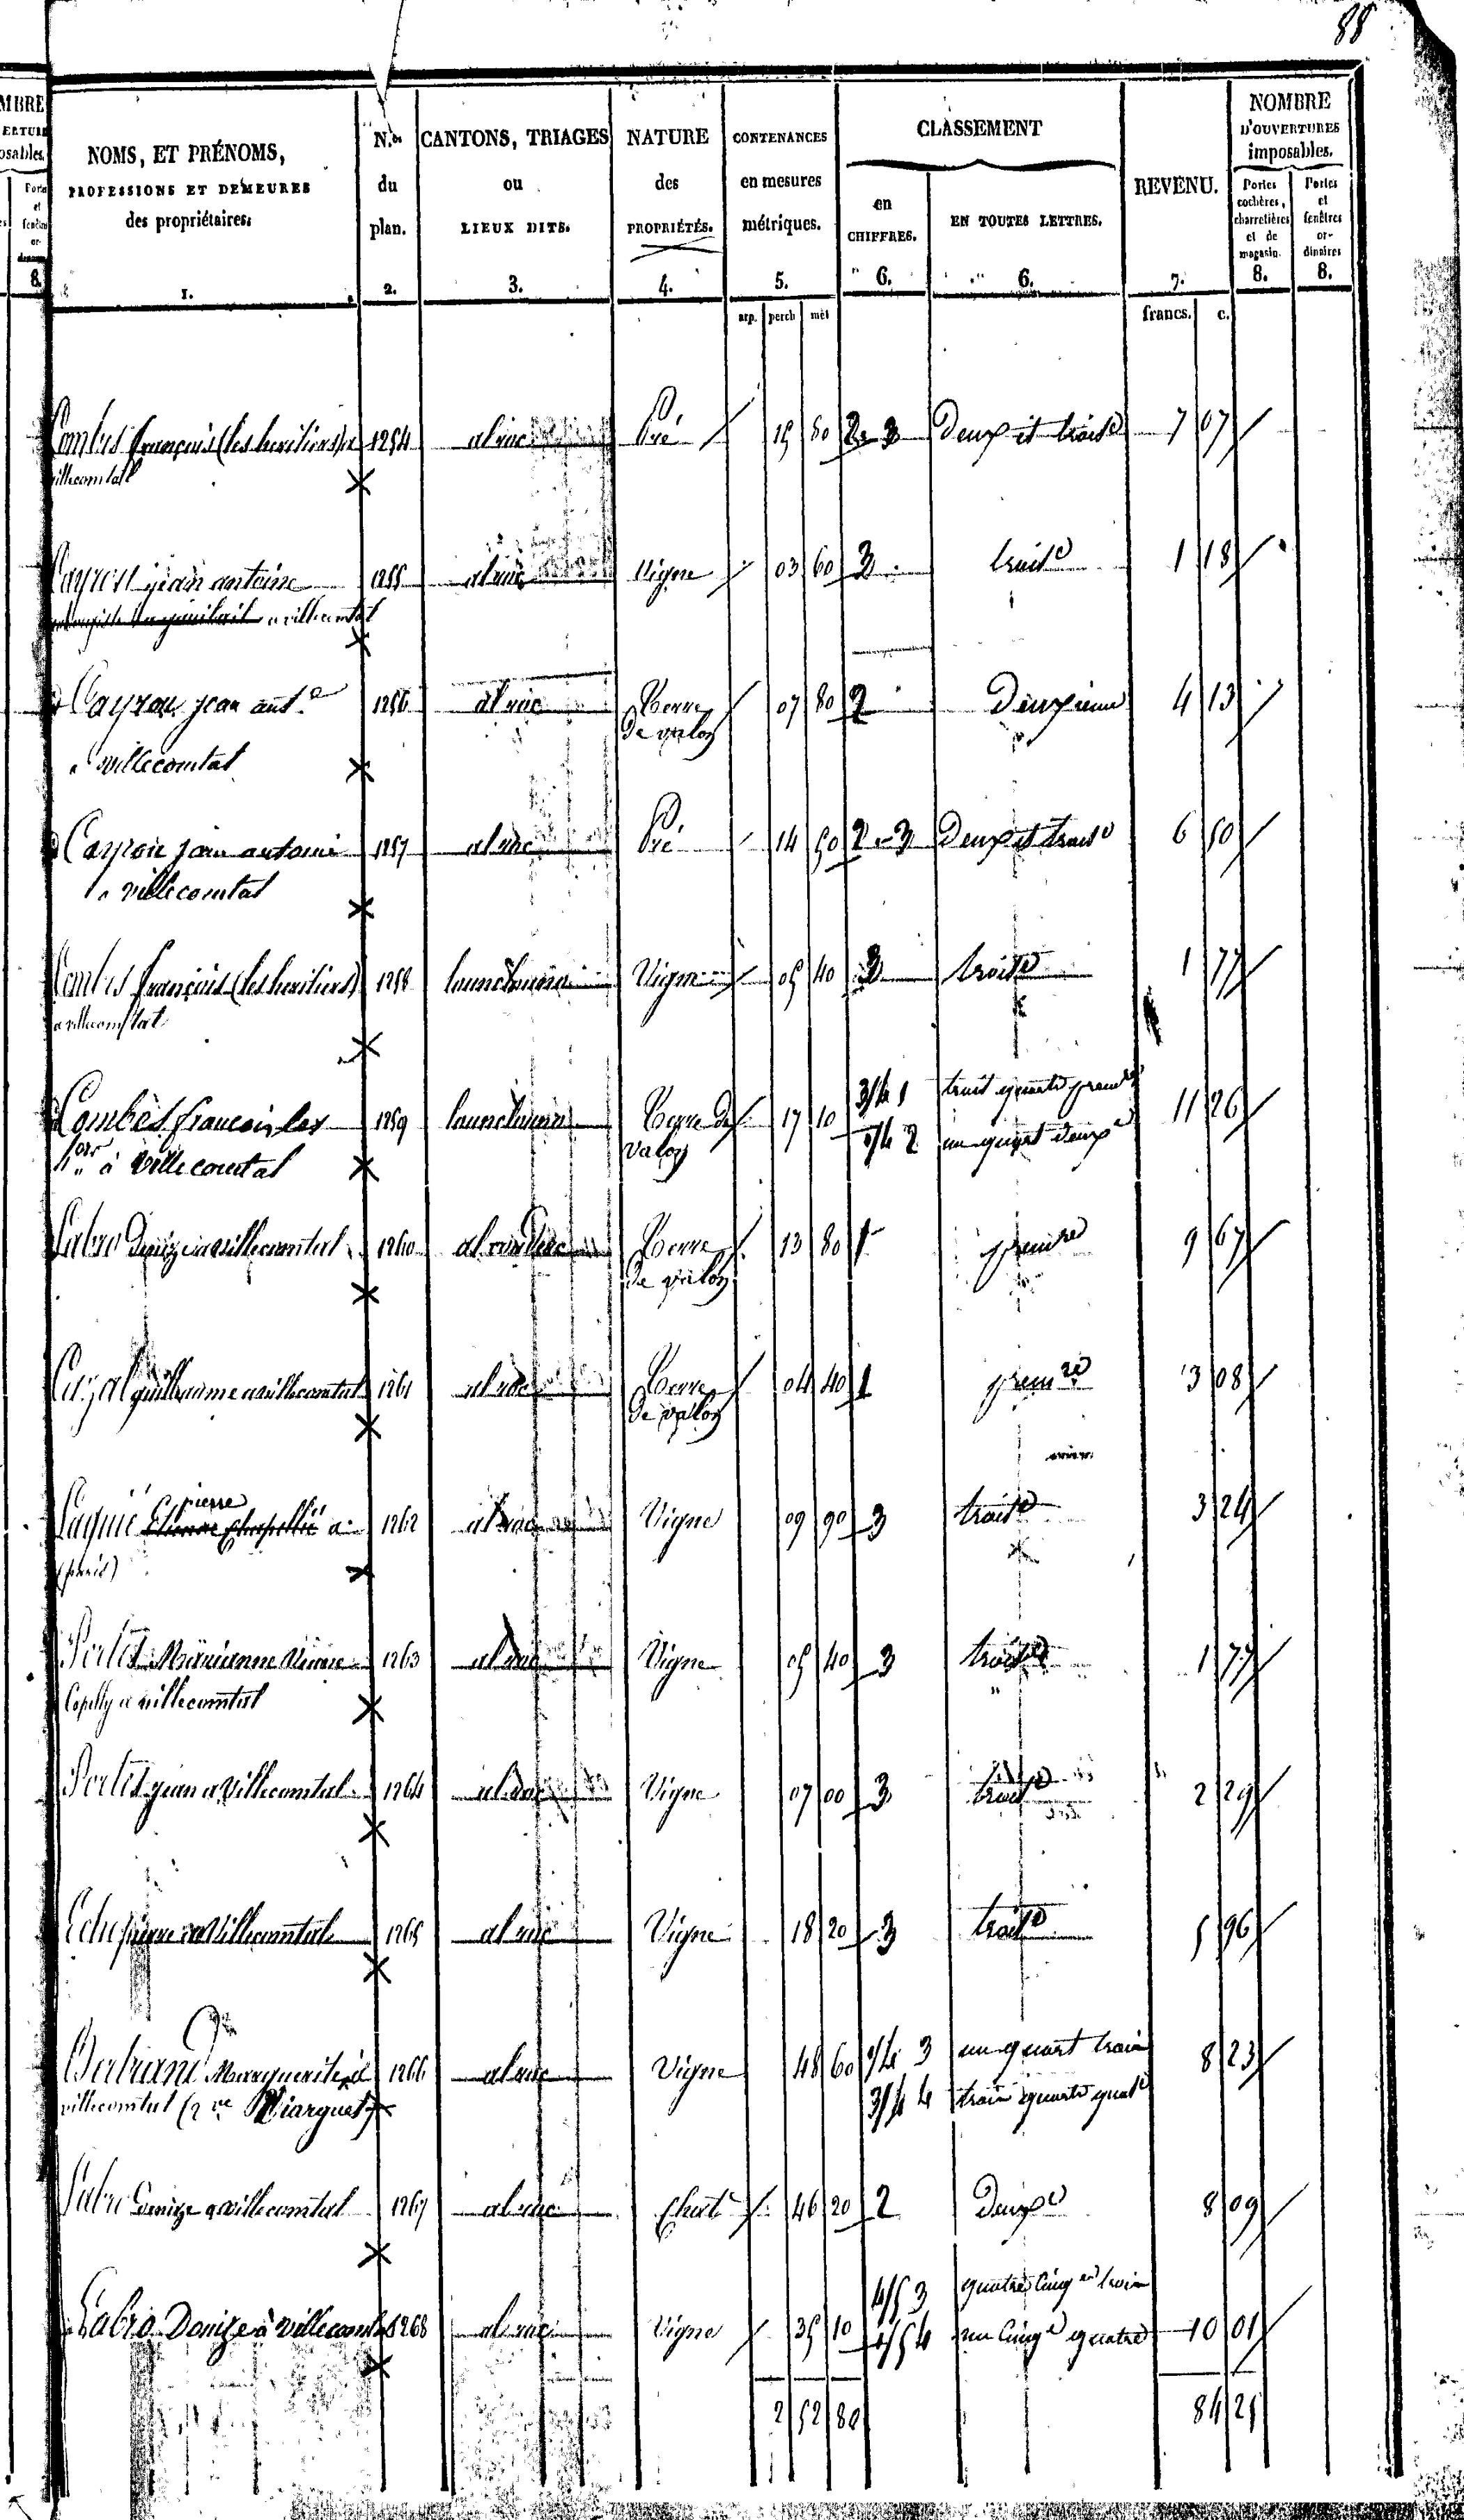 88
MBRE
ERTURE
osables.
Porte
et
fenêtres
or-
8.
NOMS, ET PRÉNOMS,
PROFESSIONS ET DEMEURES
des propriétaires.
1.
N.os
du
plan.
2.
CANTONS, TRIAGES
ou
LIEUX DITS.
3.
NATURE
des
PROPRIÉTÉS.
4.
CONTENANCES
en mesures
métriques.
5.
CLASSEMENT
en
CHIFFRES.
6.
EN TOUTES LETTRES.
6.
REVENU.
7.
NOMBRE
D'OUVERTURES
imposables.
Portes
cochères,
charretières
et de
magasin.
8.
Portes
et
fenêtres
or-
dinaires
8.
arp. perch mèt
francs. c.
Combes françois (les heritiers) a 1254 al riac Pré 15 80 2-3 Deux et troise 7 07
villecomtal
jean antoine 1255 al riac Vigne 03 60 3 troise 1 18
a villecomtal
Cayron jean ant.e 1256 al riac Terre 07 80 2 Deuxieme 4 13
de valon
a villecomtal
Cayron jean antoine 1257 al riac Pré 14 50 2-3 Deux et troise 6 50
a villecomtal
Combes françois (les heritiers) 1258 Vigne 05 40 3 troise 1 77
a villecomtal
3/4 1 trois quarts premre
Combes francois les 1259 Terre de 17 10 11 26
valon 1/4 2 un quart deuxe
a villecomtal
Labro Denize a villecomtal 1260 Terre 13 80 1 premre 9 67
de valon
guillaume a villecomtal 1261 al riac Terre 04 40 1 premre 3 08
de valon
pierre
a 1262 al riac Vigne 09 90 3 troise 3 24
Portes Marianne 1263 al riac Vigne 05 40 3 troise 1 77
a villecomtal
Portes jean a Villecomtal 1264 al riac Vigne 07 00 3 troise 2 29
pierre a Villecomtal 1265 al riac Vigne 18 20 3 troise 5 96
1/4 3 un quart trois
Marguerite a 1266 al riac Vigne 48 60 8 23
villecomtal 3/4 4 trois quarts quate
Labro Denize a villecomtal 1267 al riac Chat 46 20 2 Deuxe 8 09
4/5 3 quatre Cinq trois
Labro Denize à villecomtal 1268 al riac Vigne 35 10 10 01
1/5 4 un Cinqe quatre
2 52 80 84 25